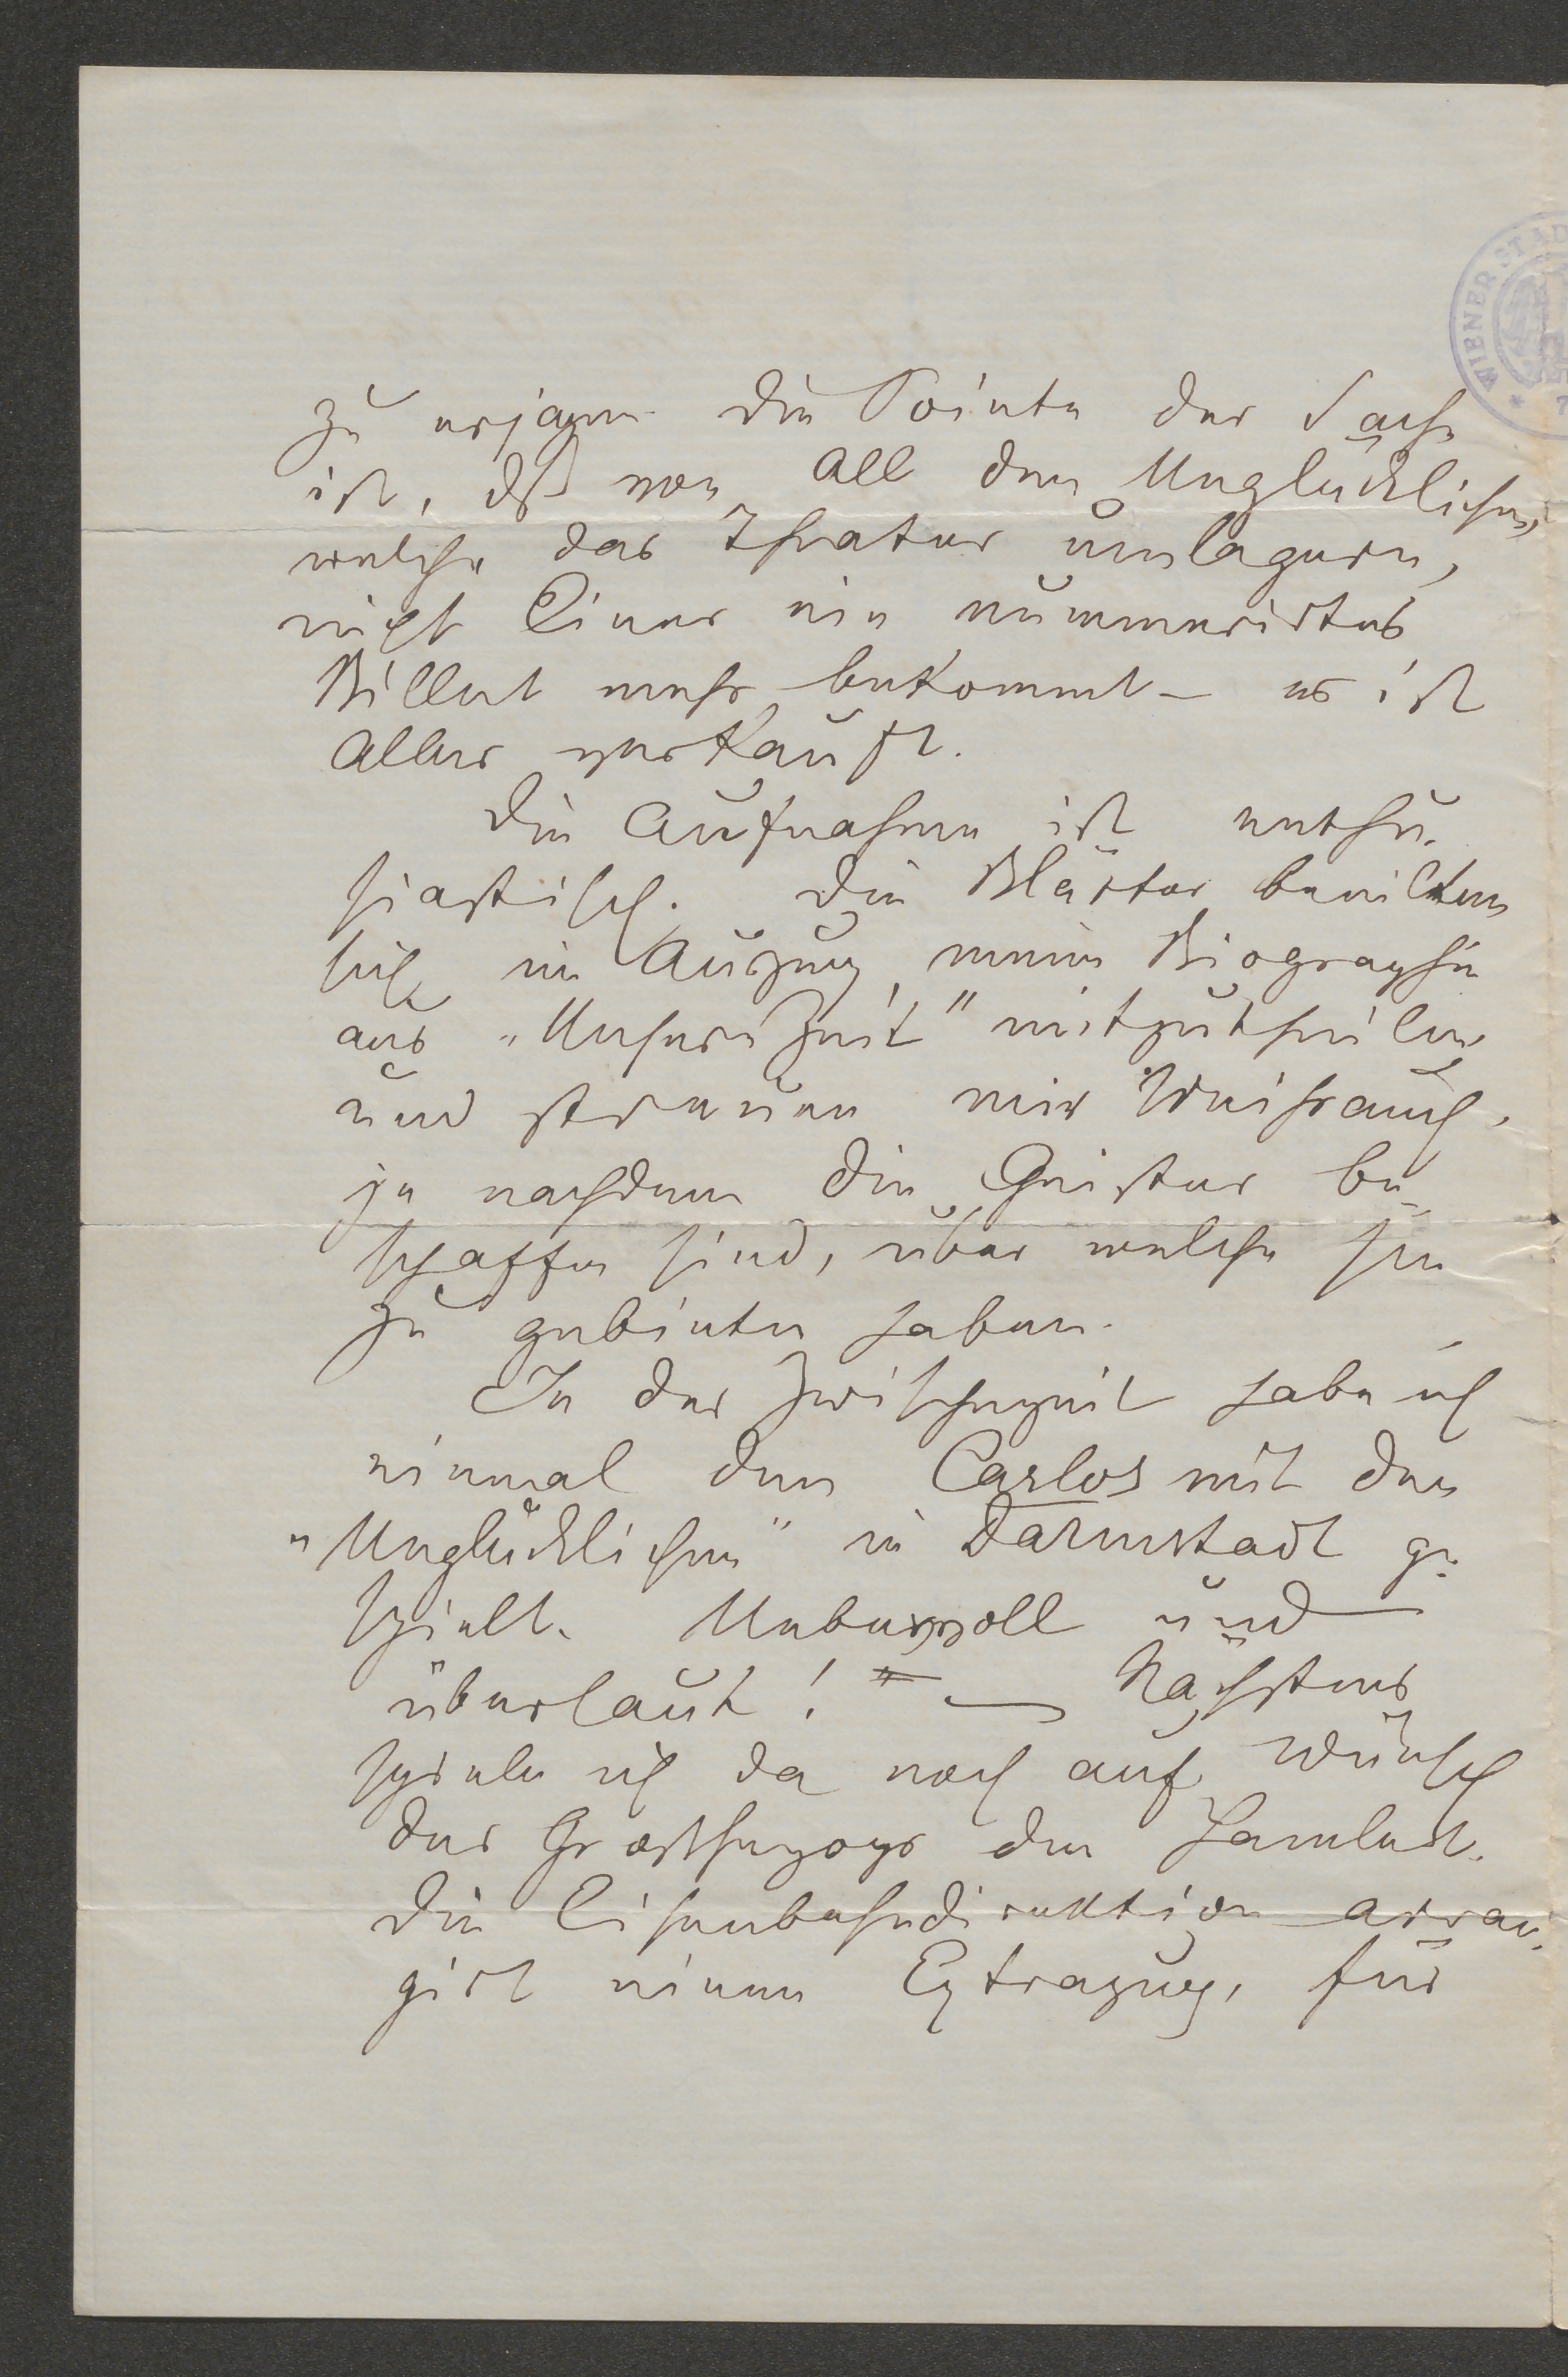 zu erjagen. Die Pointe der Sache
ist, dß von all den Unglücklichen,
welche das Theater umlagern,
nicht Einer ein nummerirtes
Billet mehr bekommt – es ist
Alles verkauft.
Die Aufnahme ist enthu-
siastisch. Die Blätter beeilten
sich, im Auszug, meine Biographie
aus „Unsere Zeit" mitzutheilen
und streuen mir Weihrauch,
je nachdem die Geister be-
schaffen sind, über welche sie
zu gebieten haben.
In der Zwischenzeit habe ich
einmal den Carlos mit den
„Unglücklichen" in Darmstadt ge-
spielt. Übervoll und
überlaut! – Nächstens
spiele ich da noch auf Wunsch
des Großherzogs den Hamlet.
Die Eisenbahndirektion arran-
girt einen Extrazug, für
WIENER STAD
* 7